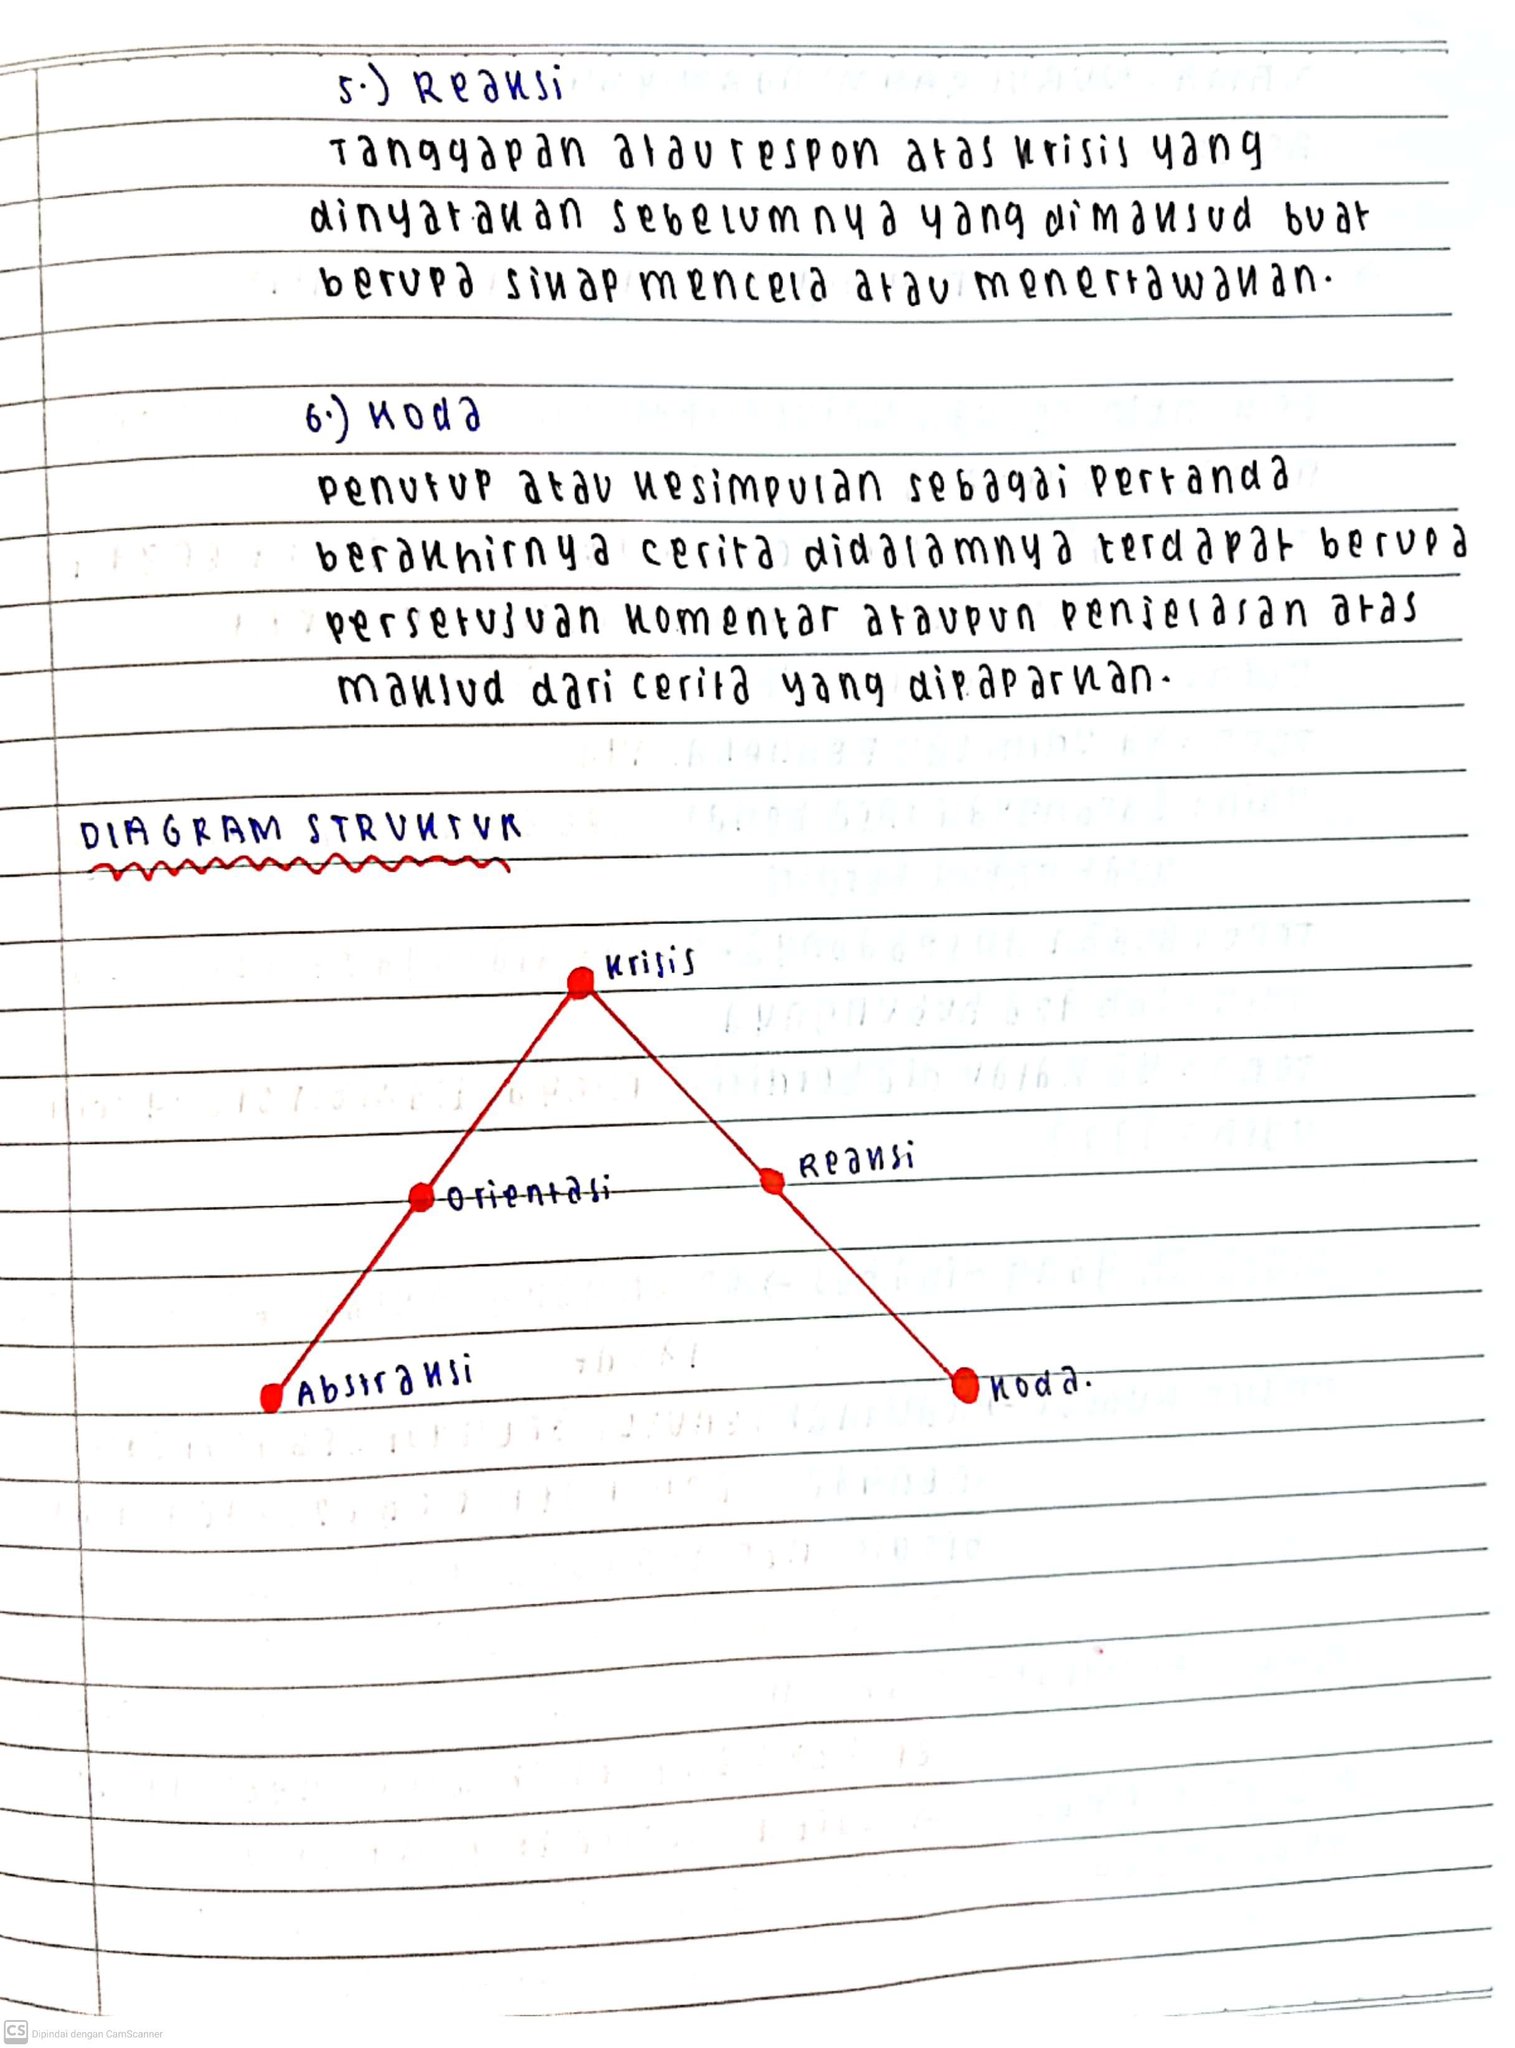 5.) Reaksi
Tanggapan atau respon atas krisis yang
dinyatakan sebelumnya yang dimaksud buat
berupa sikap mencela atau menertawakan.
6.) Koda
Penutup atau kesimpulan sebagai pertanda
berakhirnya cerita didalamnya terdapat berupa
persetujuan komentar ataupun penjelasan atas
maksud dari cerita yang dipaparkan.
DIAGRAM STRUKTUR
Krisis
Reaksi
Orientasi
Abstraksi
Koda.
CS Dipindai dengan CamScanner